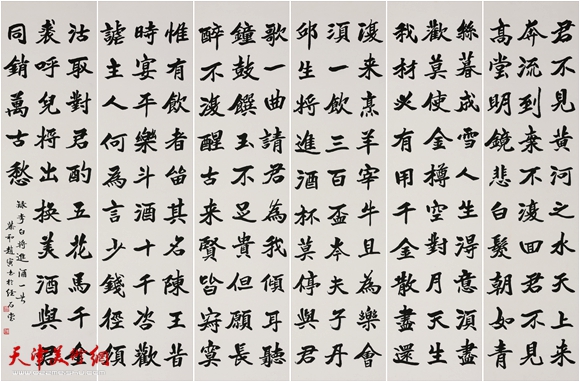 君不見黃河之水天上来
奔流到海不復回君不見
高堂明鏡悲白髮朝如青
絲暮成雪人生得意須盡
歡莫使金樽空對月天生
我材必有用千金散盡還
復来烹羊宰牛且為樂會
須一飲三百盃岑夫子丹
邱生將進酒杯莫停與君
歌一曲請君為我傾耳聽
鐘鼓饌玉不足貴但願長
醉不復醒古来賢皆寂寞
惟有飲者留其名陳王昔
時宴平樂斗酒十千恣歡
謔主人何為言少錢徑須
沽取對君酌五花馬千金
裘呼兒將出換美酒與君
同銷萬古愁
錄李白將進酒一首
天津美術網